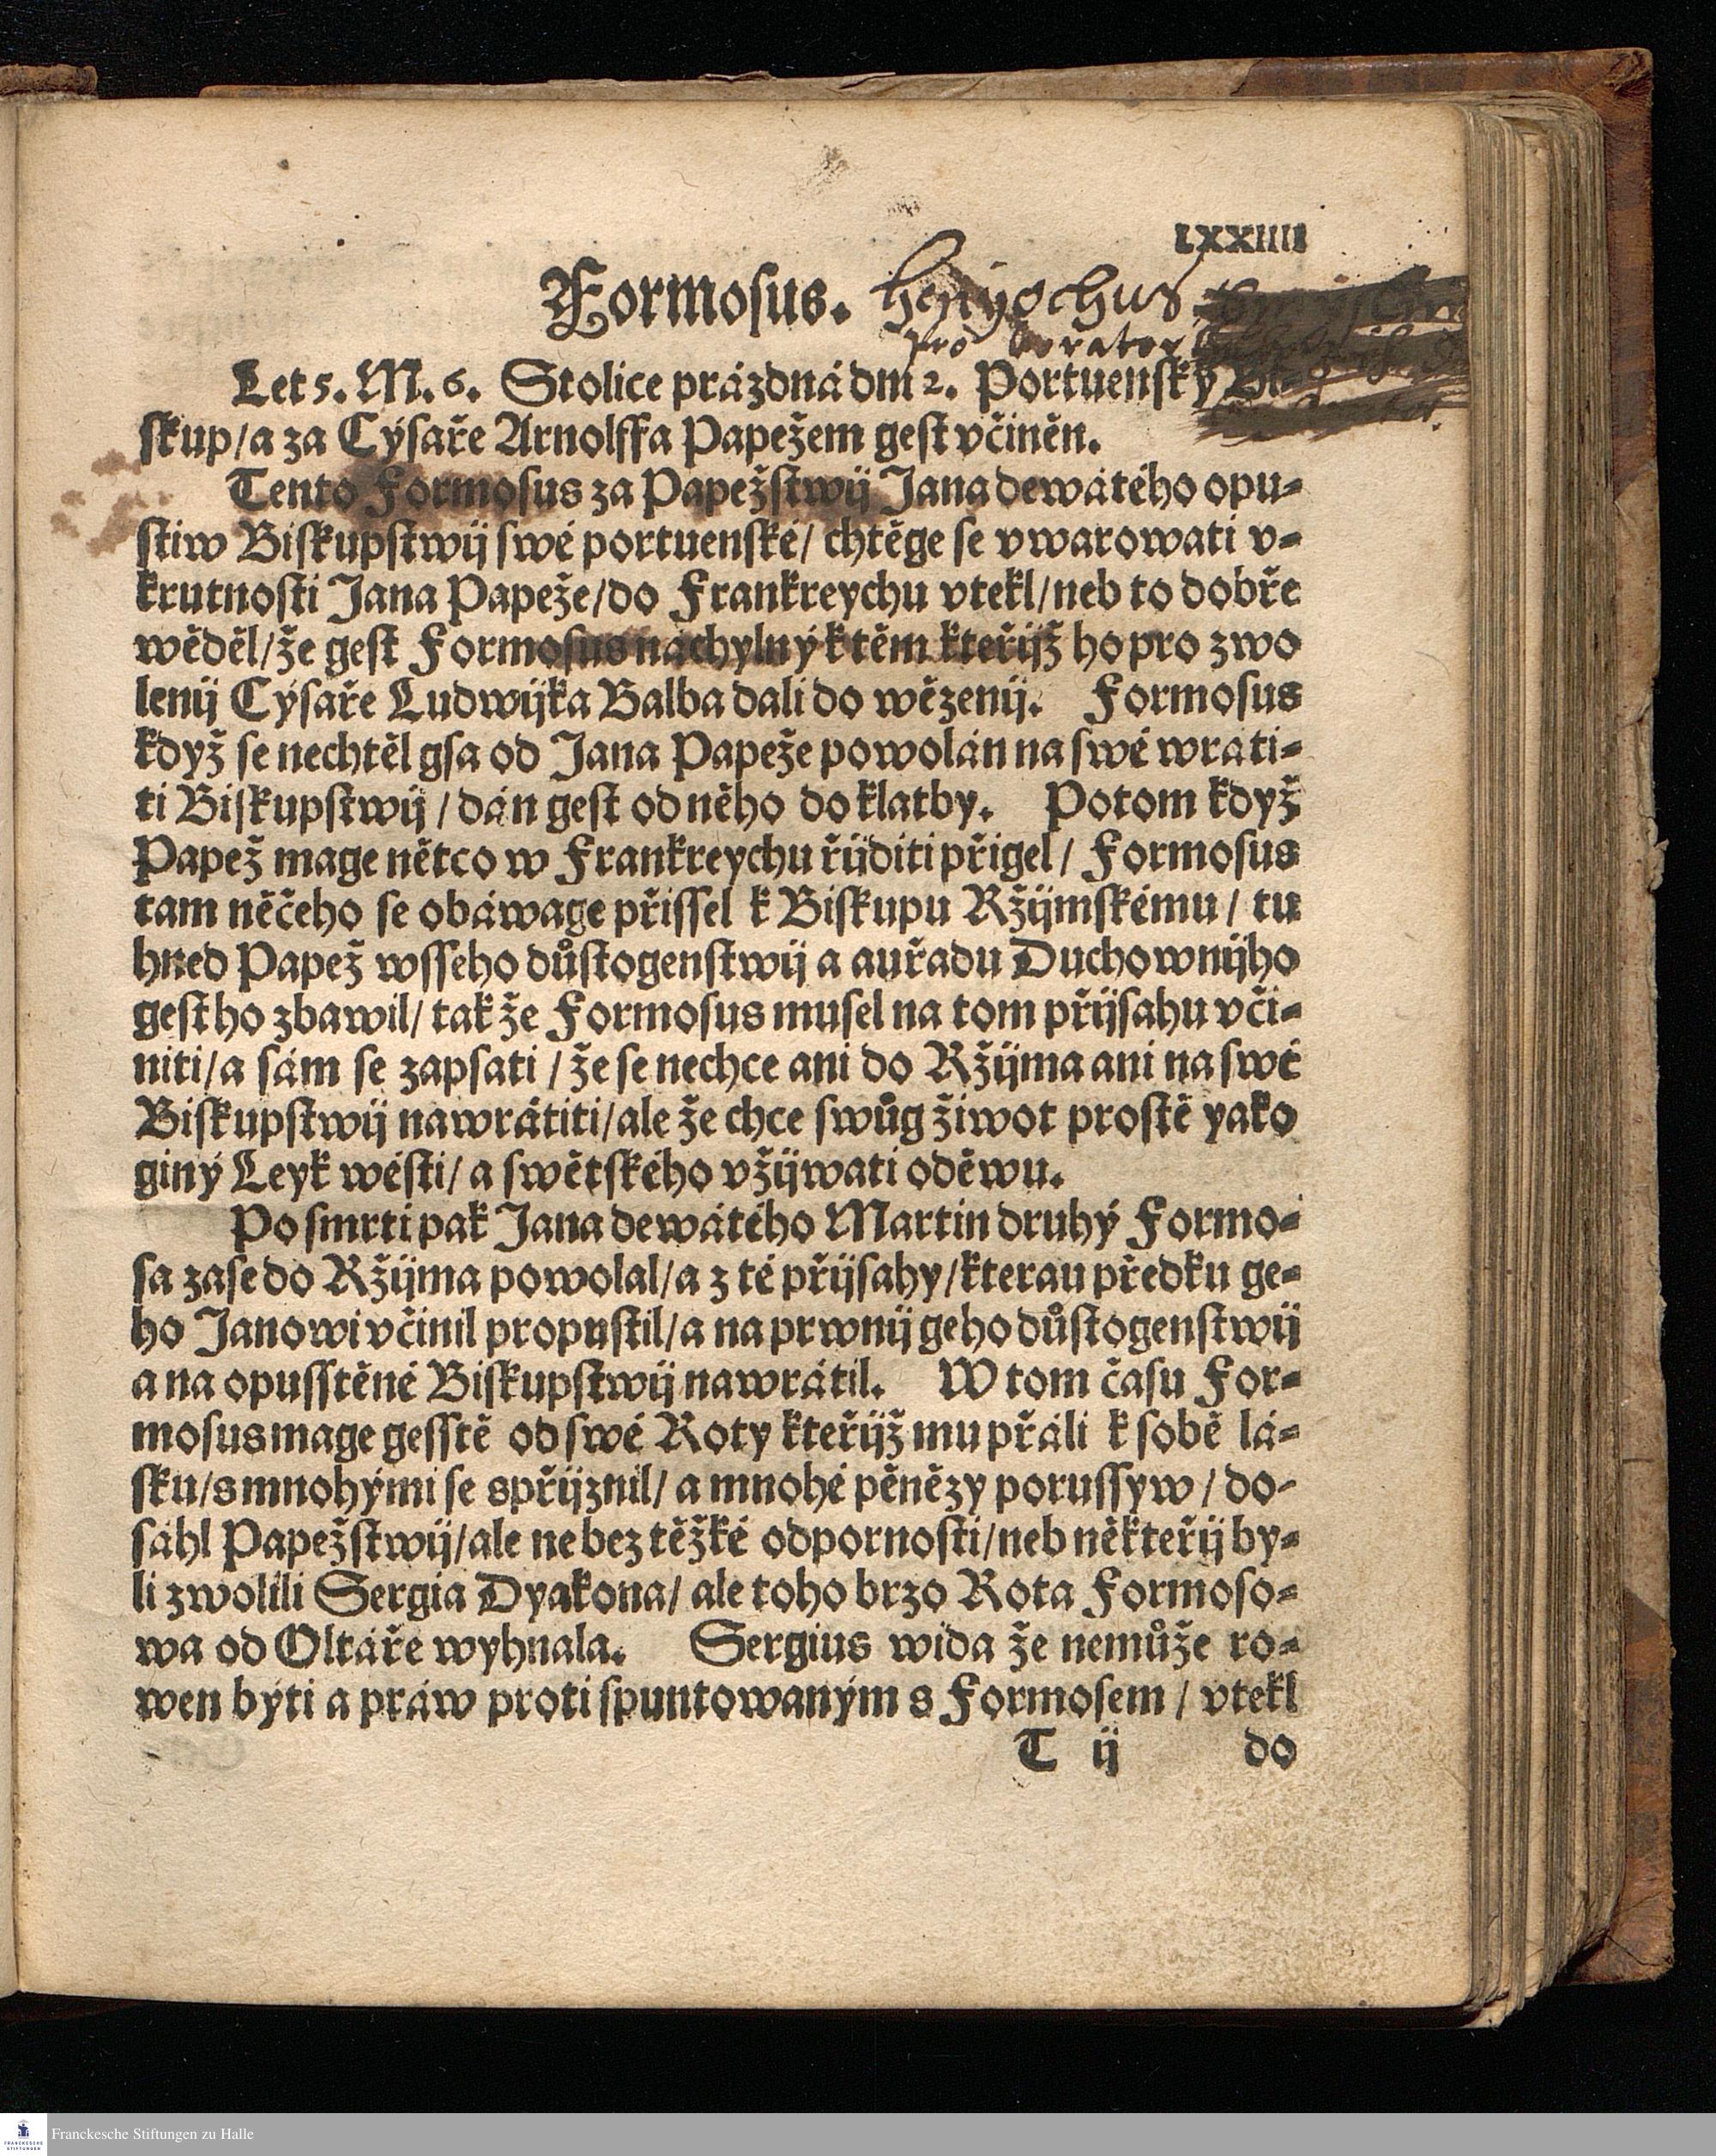 LXXIIII
Formosus.
Let 5. M. 6. Stolice prázdná dní 2. Portuenský Bi-
skup/a za Cýsaře Arnolffa Papežem gest včiněn.
Tento Formosus za Papežstwij Jana dewátého opu-
stiw Biskupstwij swé portuenské/ chtěge se vwarowati v-
krutnosti Jana Papeže/do Frankreychu vtekl/neb to dobře
wěděl/že gest Formosus nachylný k těm kteřijž ho pro zwo
lenij Cýsaře Ludwijka Balba dali do wězenij. Formosus
když se nechtěl gsa od Jana Papeže powolán na swé wráti-
ti Biskupstwij / dán gest od něho do klatby. Potom když
Papež mage nětco w Frankreychu řijditi přigel / Formosus
tam něčeho se obáwage přissel k Biskupu Ržijmskému / tu
hned Papež wsseho důstogenstwij a auřadu Duchownijho
gest ho zbawil/ tak že Formosus musel na tom přijsahu vči-
niti/a sám se zapsati / že se nechce ani do Ržijma ani na swé
Biskupstwij nawrátiti/ale že chce swůg žiwot prostě yako
giný Leyk wésti/ a swětského vžijwati oděwu.
Po smrti pak Jana dewátého Martin druhý Formo-
sa zase do Ržijma powolal/a z té přijsahy/kterau předku ge-
ho Janowi včinil propustil/a na prwnij geho důstogenstwij
a na opusstěné Biskupstwij nawrátil. W tom času For-
mosus mage gesstě od swé Roty kteřijž mu přáli k sobě lá-
sku/s mnohými se spřijznil/ a mnohé pěnězy porussyw / do-
sáhl Papežstwij/ale ne bez těžké odpornosti/neb někteřij by-
li zwolili Sergia Dyakona/ ale toho brzo Rota Formoso-
wa od Oltáře wyhnala. Sergius wida že nemůže ro-
wen býti a práw proti spuntowaným s Formosem / vtekl
T ij do
Franckesche Stiftungen zu Halle